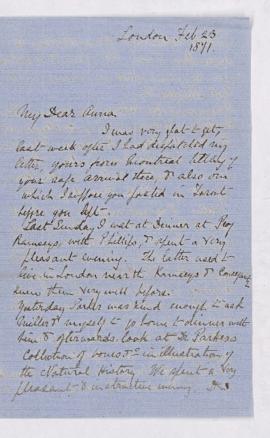 London Feb 23
1871.
My Dear Anna
I was very glad to get,
last week after I had despatched my
letter, yours from Montreal telling of
your safe arrival there, & also one
which I suppose you posted in Toront
before you left.
Last Sunday I was at Dinner at Prof
Ramsays with Phillips, & spent a very
pleasant evening. The latter used to
live in London with Ramsays &
knew them very well before.
Yesterday Parker was kind enough to ask
& myself to go home to dinner with
him & afterwards look at Dr Parkers
Collection of bones &c in illustration of
the Natural History. We spent a very
pleasant & instructive evening.